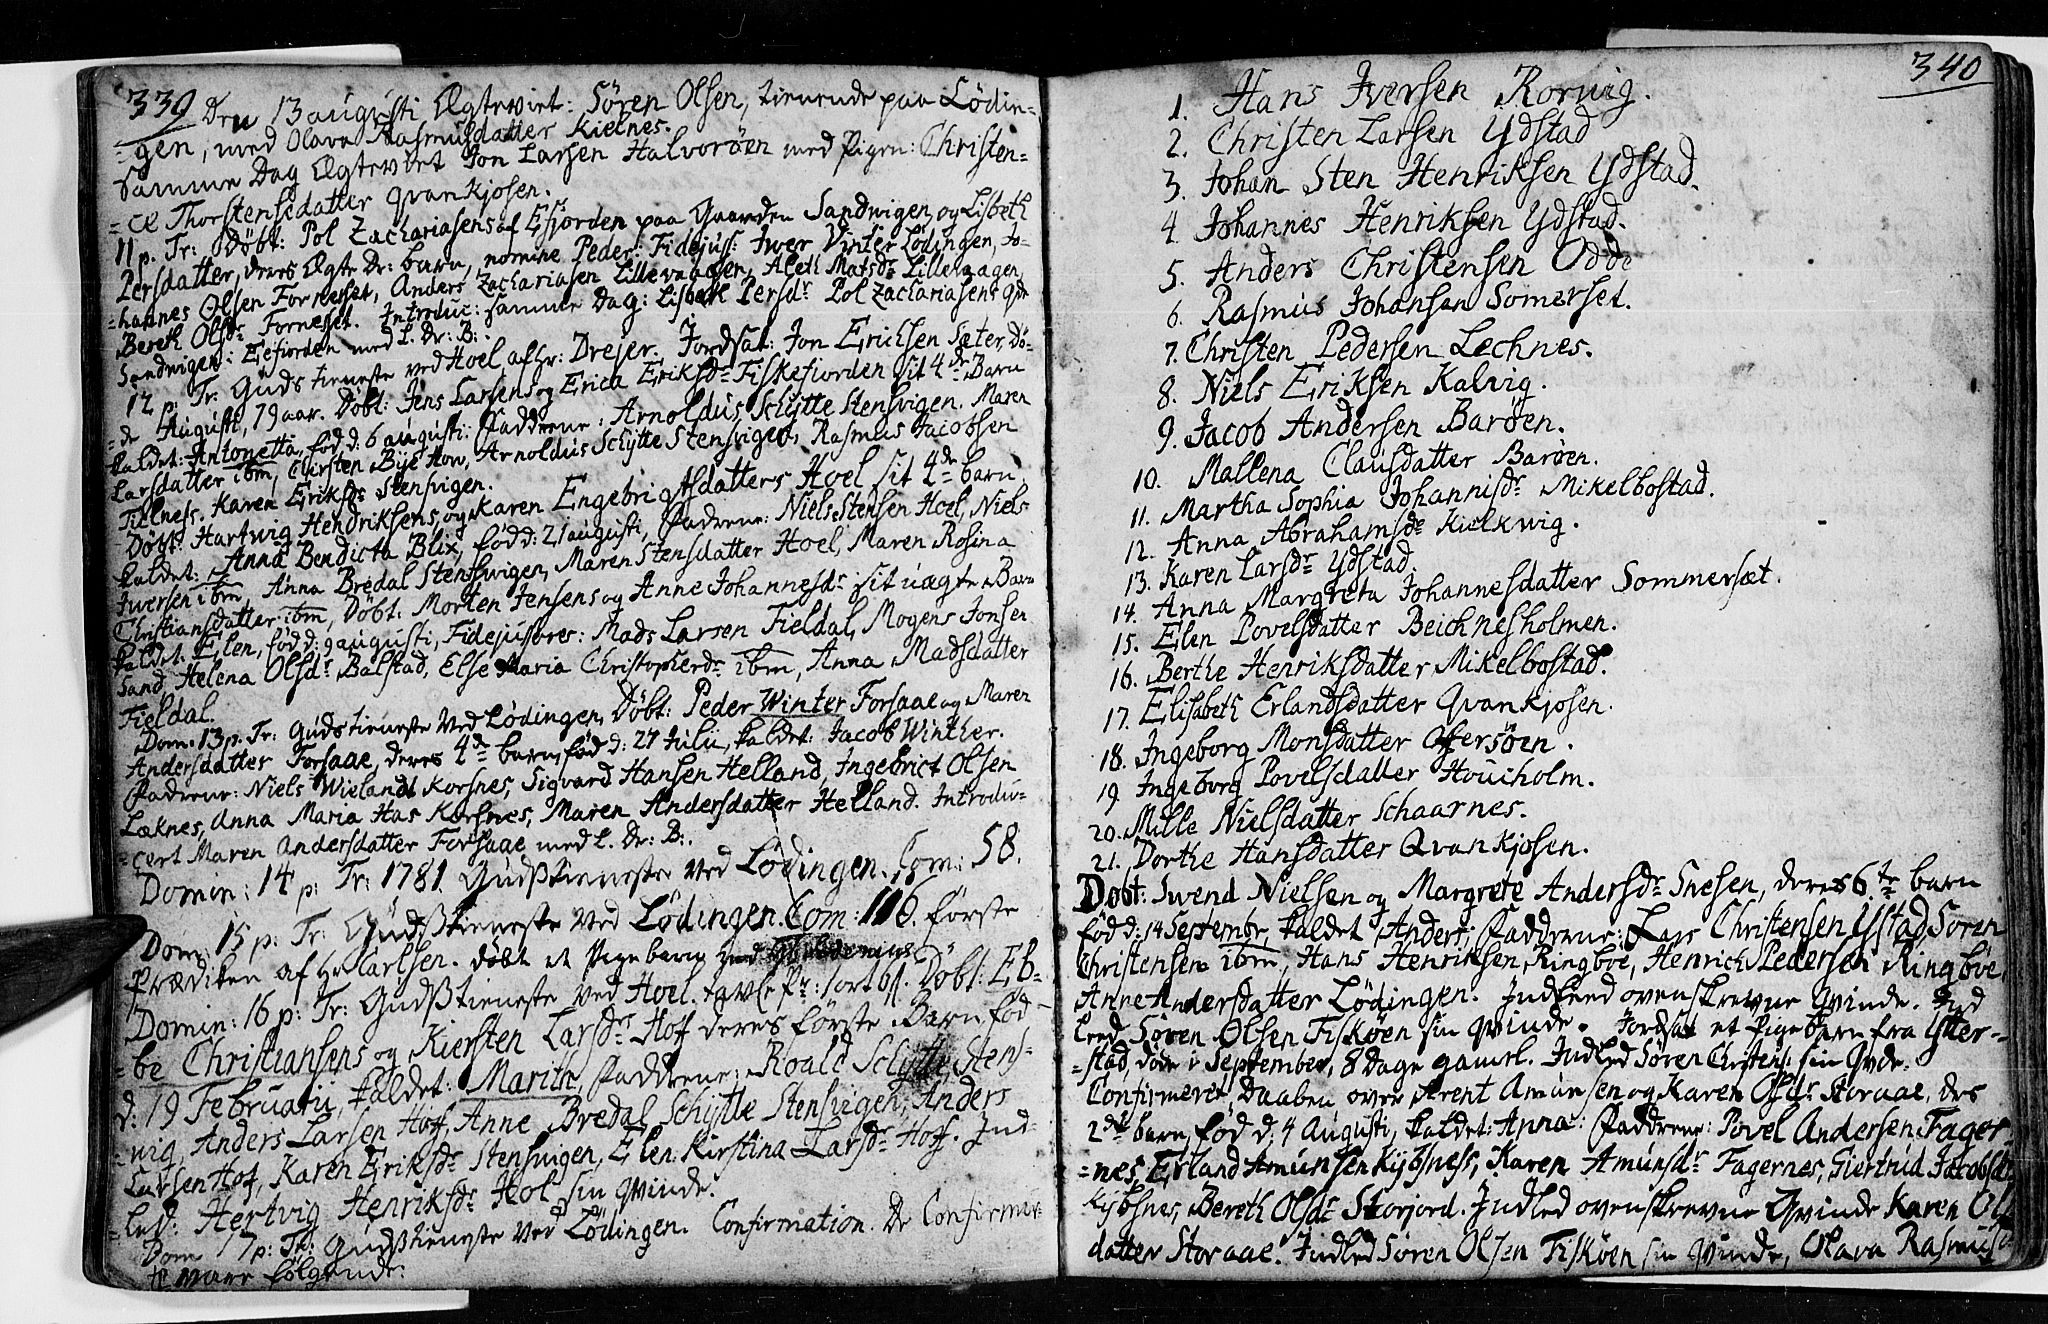 339 Den 13 augusti Ægteviet: Sören Olsen, tienende paa Lödin=
=gen, med Olava Rasmusdatter Kielnes.
Samme Dag Ægteviet Jon Larsen Halvorøen med Pigen: Christen=
=ce Thorstensdatter Qvankjosen.
11 p. Tr: Døbt: Pol Zachariasens af Efjorden paa Gaarden Sandvigen, og Lisbeth
Persdatter, deres Ægte Dr: barn, nomine Peder: Fidejuss: Iwer Vinter Lödingen, Jo=
=hannes Olsen Forneset, Anders Zachariasen Lillevaagen, Aleth Matsdr Lillevaagen,
Bereth Olsdr Forneset. Introduc: samme Dag: Lisbeth Persdr Pol Zachariasens qde
Sandvigen: Eefiorden med L. Dr: B:.
12 p: Tr. Guds tieneste ved Hoel, af Hr: Dreier. Jordsat: Jon Erichsen Sæter, Dö=
=de Augusti, 79 aar. Døbt: Jens Larsens og Erica Eriksdr Fiskefiorden sit 4de Barn
kaldet: Antonetta, född d. 6 augusti: Faddrene: Arnoldus Schytte Stensvigen. Maren
Larsdatter ibm, Carsten Bye Hov, Arnoldus Schytte Stensvigen, Rasmus Jacobsen
Tielness. Karen Eriksdr Stensvigen.
Døbt: Hartwig Hendriksens, og Karen Engebrigtsdatters Hoel sit 4de barn,
kaldet: Anna Bendicta Blix, född d: 21 augusti, Faddrene: Niels Stensen Hoel, Niels
Iwersen ibm, Anna Bredal Stensvigen, Maren Stensdatter Hoel, Maren Rosina
Christiansdatter ibm, Döbt: Morten Jensens og Anne Johannesdr sit uægte Barn
kaldet: Elen, föd d: 9 augusti, Fidejussores: Mads Larsen Fieldal, Mogens Jonsen
Sand, Helena Olsdr Balstad, Else Maria Christopherdr ibm, Anna Madsdatter
Fieldal.
Dom. 13 p. Tr: Guds tieneste ved Lödingen, Döbt: Peder Winter Forsaae og Maren
Andersdatter Forsaae, deres 4de barn, född d: 27 Julii, kaldet: Jacob Winther.
Faddrene: Niels Wielandt Korsnes, Sigvard Hansen Helland, Ingebrict Olsen
Læknes, Anna Maria Has Korsnes, Maren Andersdatter Helland. Introdu=
=cert Maren Andersdatter Forsaae med L. Dr: B:.
Domin: 14 p: Tr: 1781. Gudstieneste ved Lödingen. Com: 58.
Dom: 15 p: Tr: Gudstieneste ved Lödingen. Com: 116. förste
Prædiken af Hr Carlsen. döbt et Pigebarn
Domin: 16 p: Tr: Gudstieneste ved Hoel. Döbt: Eb=
=be Christiansens og Kiersten Larsdr Hof deres förste Barn född
d: 19 Februarii, kaldet: Marith, Faddrene: Roald Schytte Stens=
=vig, Anders Larsen Hof, Anne Bredal Schytte Stensvigen, Anders
Larsen Hof, Karen Eriksdr Stensvigen, Elen Kirstina Larsdr Hof. Ind=
=led: Hertvig Henriksdr Hol sin Qvinde.
Dom 17 p: Tr: Gudstieneste ved Lödingen. Confirmation. De Confirmer=
=te vare følgende:
340
1. Hans Iversen Rorvig.
2. Christen Larsen Ydstad
3. Johan Sten Henriksen Ydstad.
4. Johannes Henriksen Ydstad.
5. Anders Christensen Odde
6. Rasmus Johansen Somerset.
7. Christen Pedersen Lechnes.
8. Niels Eriksen Kalvig.
9. Jacob Andersen Barøen.
10. Mallena Clausdatter Barøen.
11. Martha Sophia Johannisdr Mikelbostad.
12. Anna Abrahamsdr Kielkwig.
13. Karen Larsdr Ydstad.
14. Anna Margreta Johannesdatter Sommersæt.
15. Elen Povelsdatter Beichnesholmen.
16. Berthe Henriksdatter Mikelbostad.
17. Elisabeth Erlandsdatter Qvankjosen.
18. Ingeborg Monsdatter Offersöen.
19. Ingeborg Povelsdatter Houcholm.
20. Mille Nielsdatter Schaarnes.
21. Dorthe Hansdatter Qvankjosen.
Døbt: Swend Nielsen og Margrete Andersdr Snesen, deres 6te barn
född d: 14 Septembr, kaldet Anders; Faddrene: Lars Christensen Ystad, Søren
Christensen ibm, Hans Henriksen Ringböe, Henrich Pedersen Ringböe,
Anne Andersdatter Lödingen. Indleed ovenskrevne Qvinde. Ind
leed Søren Olsen Fiskøen sin Qvinde. Jordsat et Pigebarn fra Ytter=
=stad, döde i September, 8 Dage gamel. Indled Søren Christens: sin Qvde.
Confirmeret Daaben over Arent Amunsen og Karen Olsdr Storaae, des
2det barn, föd d: 4 Augusti, kaldet: Anna: Faddrene: Povel Andersen Fager=
=nes, Erland Amunsen Kybsness, Karen Amunsdr Fagernes, Giertrud Jacobsdr
Kybsnes, Bereth Olsdr Storjord. Indled ovenskrevne Qvinde Karen Ols
datter Storaae. Indled Søren Olsen Fiskøen sin Qvinde, Olava Rasmusd